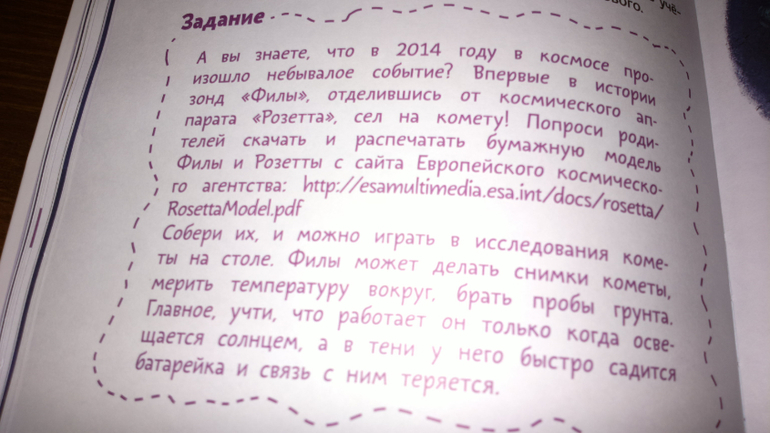 учё-
ового.
Задание
А вы знаете, что в 2014 году в космосе про-
изошло небывалое событие? Впервые в истории
зонд «Филы», отделившись от космического ап-
парата «Розетта», сел на комету! Попроси роди-
телей скачать и распечатать бумажную модель
Филы и Розетты с сайта Европейского космическо-
го агентства: http://esamultimedia.esa.int/docs/rosetta/
RosettaModel.pdf
Собери их, и можно играть в исследования коме-
ты на столе. Филы может делать снимки кометы,
мерить температуру вокруг, брать пробы грунта.
Главное, учти, что работает он только когда осве-
щается солнцем, а в тени у него быстро садится
батарейка и связь с ним теряется.